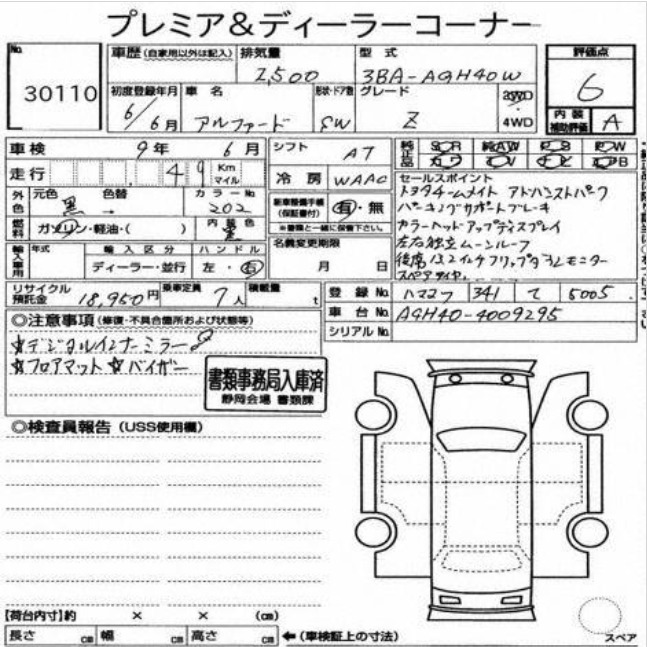 プレミア&ディーラーコーナー
No. 30110
車歴 (自家用以外は記入)
排気量 2,500
型式 3BA-AGH40W
評価点 6
初度登録年月 6/6月
車名 アルファード
形状・ドア数 SW
グレード Z
2WD
4WD
内装補助評価 A
車検 9年 6月
シフト AT
純正品 SR AW PS PW
走行 49 Km マイル
冷房 WAAC
セールスポイント
トヨタチームメイト アドバンストパーク
パーキングサポートブレーキ
カラーヘッドアップディスプレイ
左右独立ムーンルーフ
後席13.2インチリップダウンモニター
スペアタイヤ
外色 元色 黒 色替 →
カラーNo. 202
新車整備手帳 (保証書付) 有・無
※書類と一緒に保管下さい。
燃料 ガソリン・軽油・( )
内装色 黒
輸入車用 年式 輸入区分 ハンドル
ディーラー・並行 左・右
名義変更期限 月 日
リサイクル預託金 18,950円
乗車定員 7人
積載量 t
登録No. ハママツ 341 て 5005
車台No. AGH40-4009295
シリアルNo.
◎注意事項 (修復・不具合箇所および状態等)
☆デジタルインナーミラー
☆フロアマット ☆バイザー
書類事務局入庫済
静岡会場 書類課
◎検査員報告 (USS使用欄)
【荷台内寸】約 × × (cm)
長さ cm 幅 cm 高さ cm ←(車検証上の寸法)
スペア